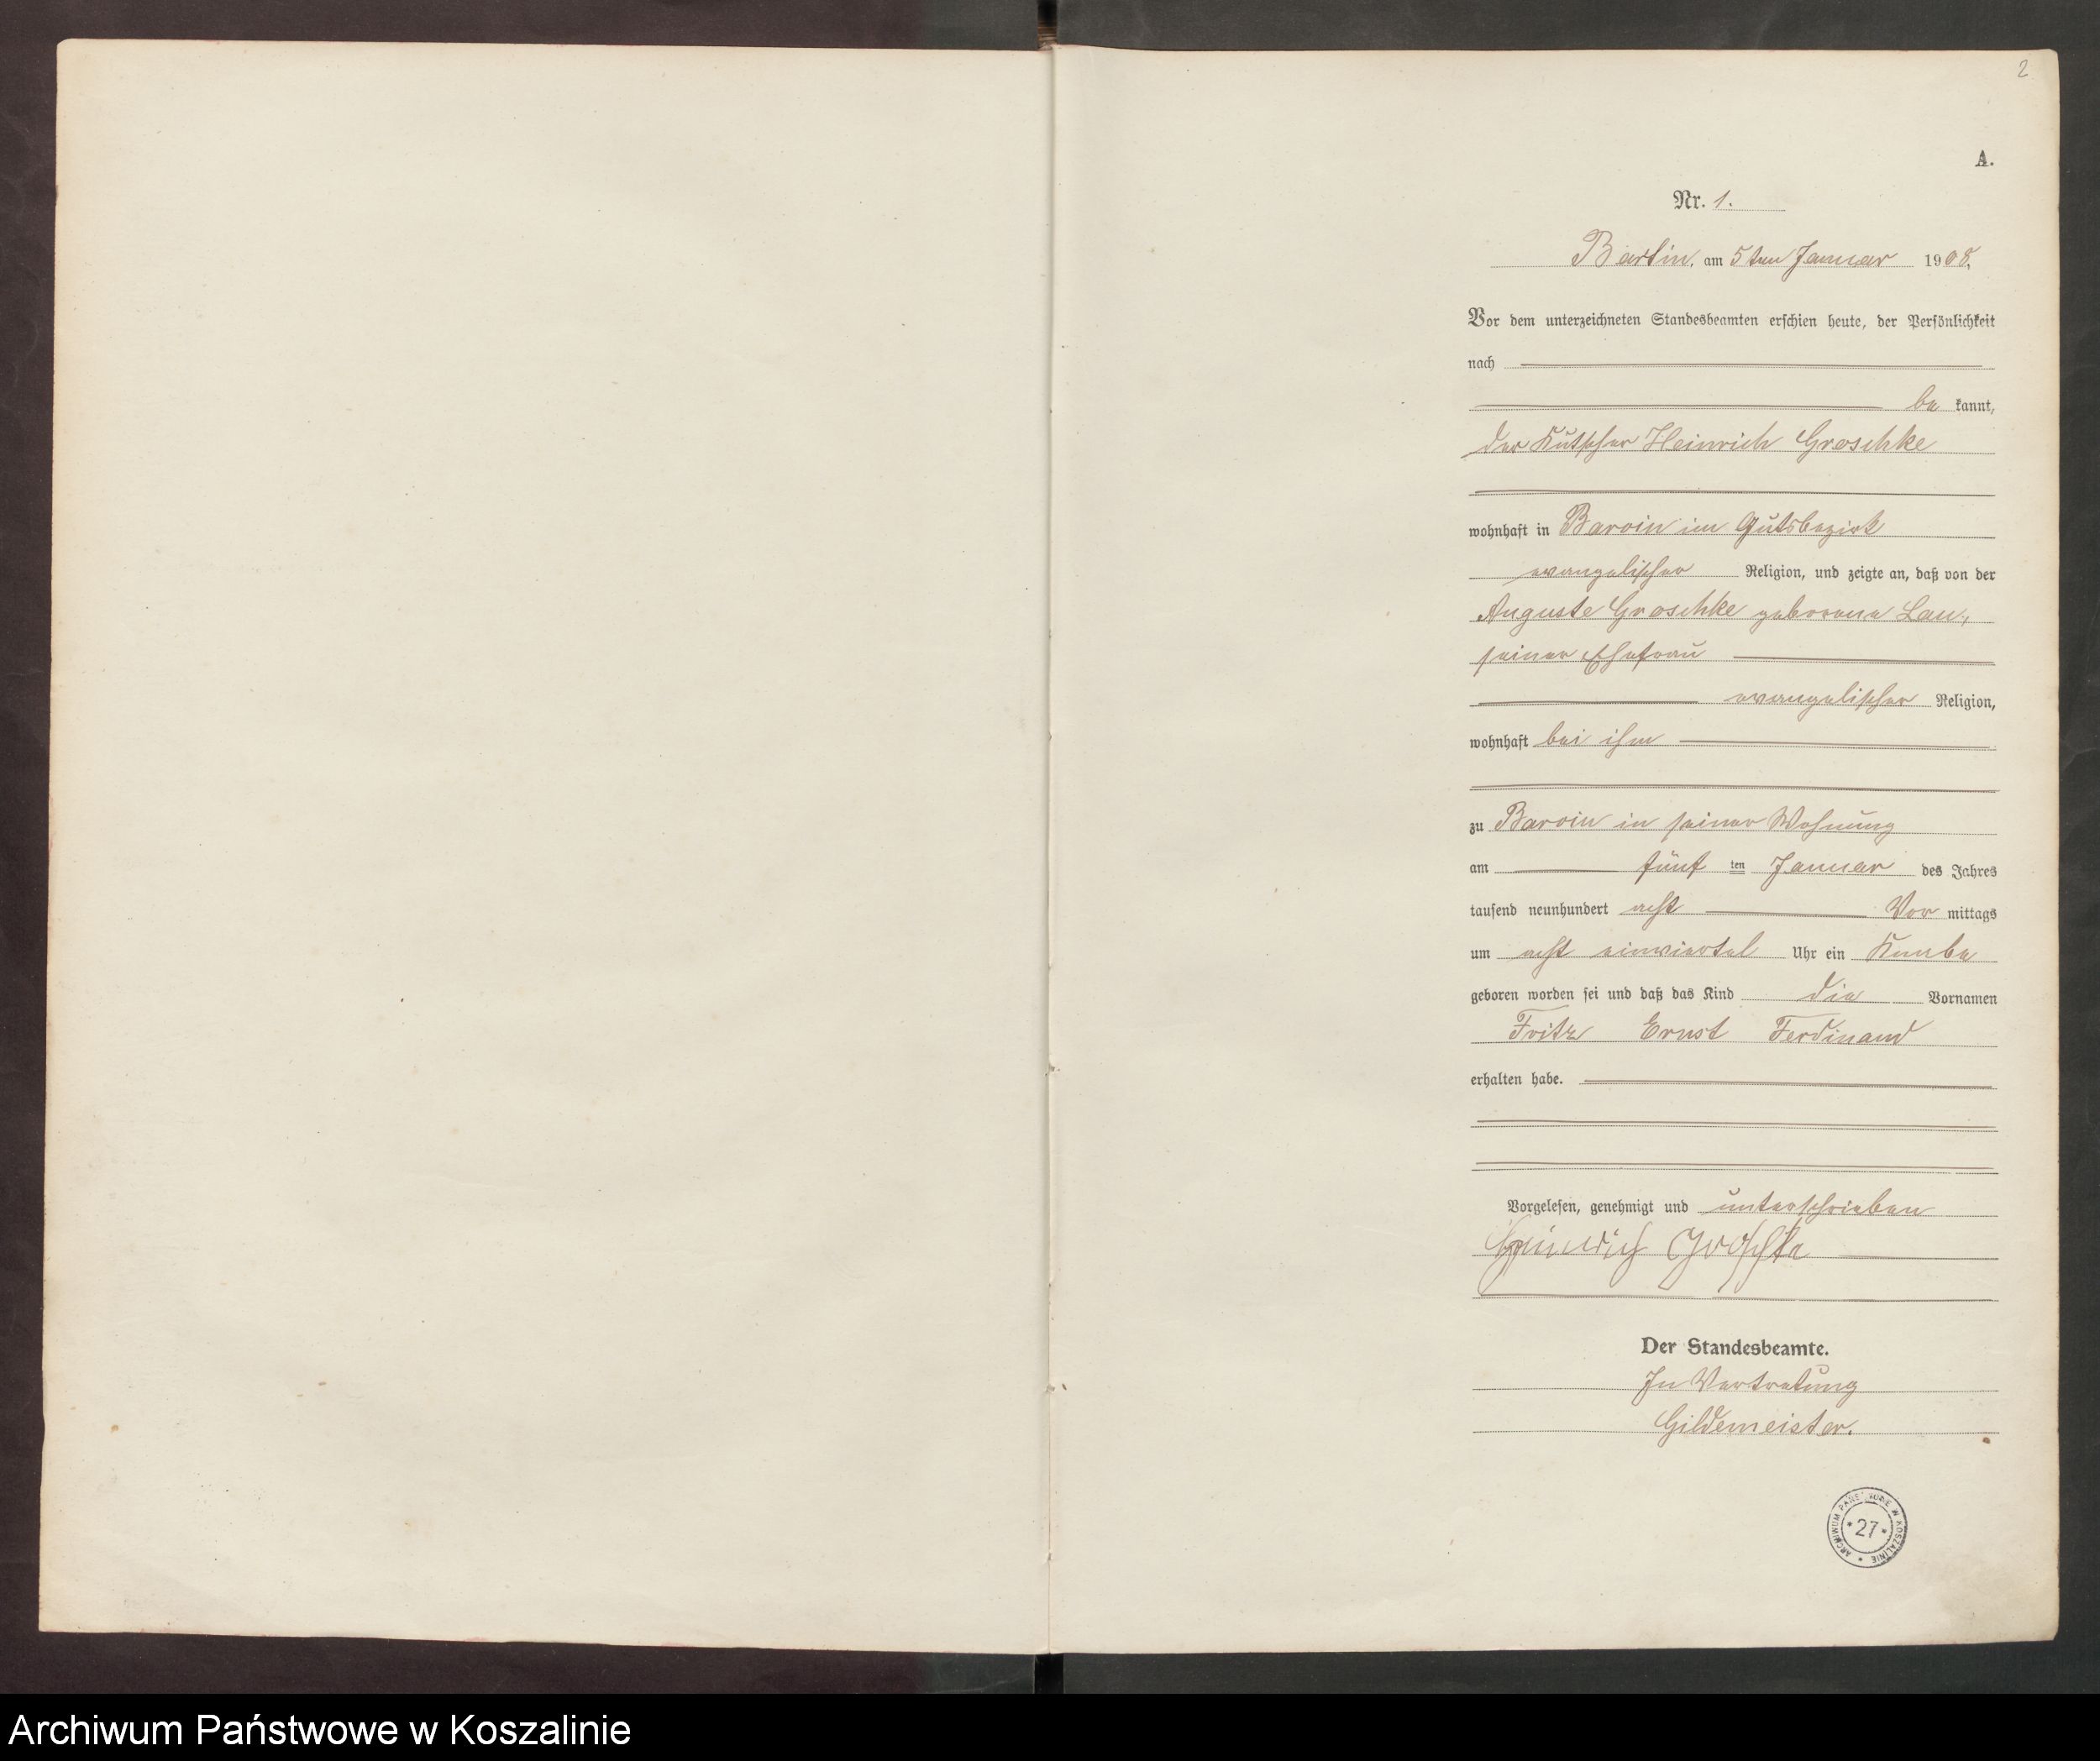 2
A.
Nr. 1.
Bartin, am 5ten Januar 1908.
Vor dem unterzeichneten Standesbeamten erschien heute, der Persönlichkeit
nach
be kannt,
der Kutscher Heinrich Groschke
wohnhaft in Barvin im Gutsbezirk
evangelischer Religion, und zeigte an, daß von der
Auguste Groschke geborene Lau,
seiner Ehefrau
evangelischer Religion,
wohnhaft bei ihm
zu Barvin in seiner Wohnung
am fünf ten Januar des Jahres
tausend neunhundert acht Vor mittags
um acht einviertel Uhr ein Knabe
geboren worden sei und daß das Kind die Vornamen
Fritz Ernst Ferdinand
erhalten habe.
Vorgelesen, genehmigt und unterschrieben
Heinrich Groschke
Der Standesbeamte.
In Vertretung
Gildemeister.
ARCHIWUM PAŃSTWOWE W KOSZALINIE
* 27 *
Archiwum Państwowe w Koszalinie